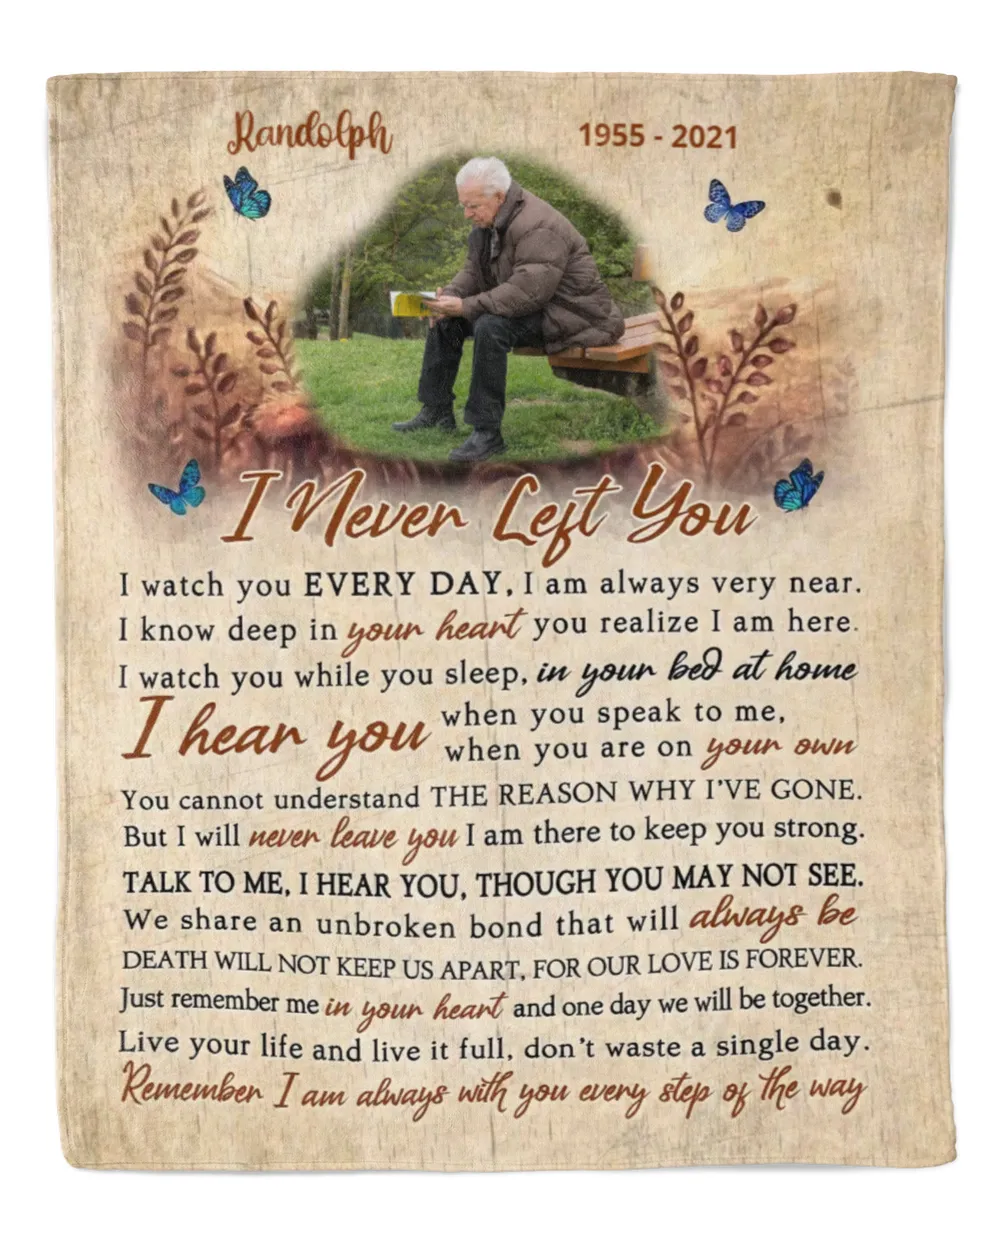 Randolph
1955 - 2021
I Never Left You
I watch you EVERY DAY, I am always very near.
I know deep in your heart you realize I am here.
I watch you while you sleep, in your bed at home
I hear you when you speak to me,
when you are on your own
You cannot understand THE REASON WHY I'VE GONE.
But I will never leave you I am there to keep you strong.
TALK TO ME, I HEAR YOU, THOUGH YOU MAY NOT SEE.
We share an unbroken bond that will always be
DEATH WILL NOT KEEP US APART, FOR OUR LOVE IS FOREVER.
Just remember me in your heart and one day we will be together.
Live your life and live it full, don't waste a single day.
Remember I am always with you every step of the way